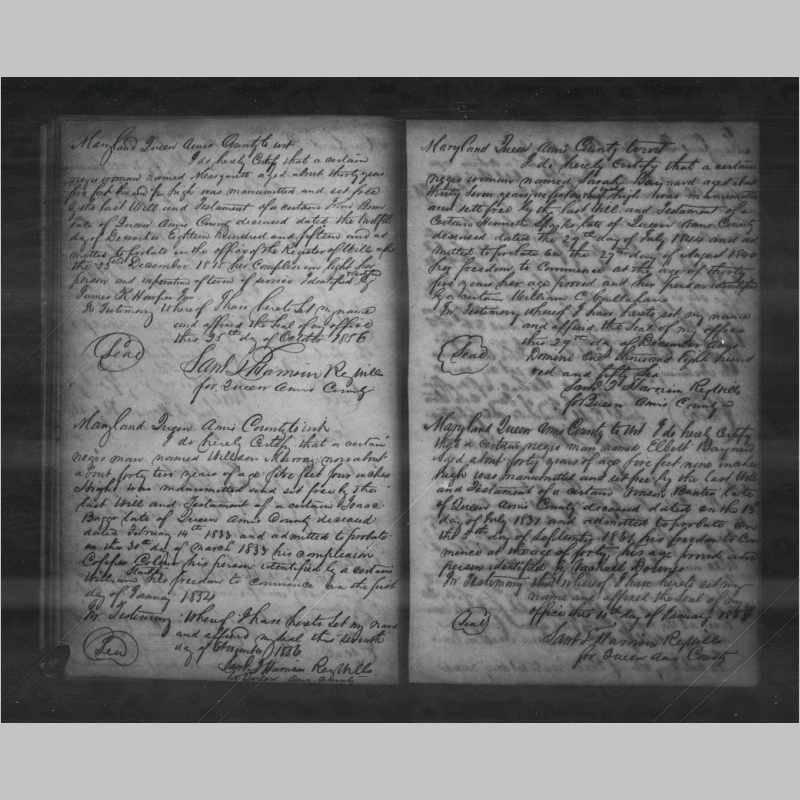 Maryland Queen Anns County to wit
I do hereby Certify that a certain
negro woman named Margarett aged about thirty years
five feet high was manumitted and set free
by the last Will and Testament of a certain
late of Queen Anns County deceased dated the twelfth
day of December Eighteen hundred and fifteen and ad
mitted to probate in the office of the Register of Wills of
the 23rd December 1815 her Complexion light her
person and expiration of term of service identified by
James
In Testimony Whereof I have hereto Set my name
and affixed the Seal of my office
this 25th day of October 1856
Seal
Saml T Harrison Reg Wills
for Queen Anns County
Maryland Queen Anns County to wit
I do hereby Certify that a certain
negro man named William Murray now about
about forty two years of age five feet four inches
Height was manumitted and set free by the
last Will and Testament of a certain Isaac
late of Queen Anns County deceased
dated February 14th 1833 and admitted to probate
on the 30th day of March 1833 his complexion
Copper Colour his person identified by a certain
William his freedom to commence on the first
day of January 1834
In Testimony Whereof I have hereto Set my name
and affixed my seal this seventh
day of 1856
Seal
Saml T Harrison Reg Wills
for Queen Anns County
Maryland Queen Anns County to wit
I do hereby Certify that a certain
negro woman named Sarah Baynard aged about
thirty seven years high was manumitted
and set free by the last Will and Testament of a
Certain late of Queen Anns County
deceased dated the 27th day of July 1840 and ad
mitted to probate on the 27th day of August 1840
her freedom to Commence at the age of thirty
five years her age proved and her person identified
by a certain William C
In Testimony whereof I have hereto set my name
and affixed the Seal of my office
this 29th day of December Anno
Domini One thousand Eight hund
red and fifty six
Seal
Saml T Harrison Reg Wills
for Queen Anns County
Maryland Queen Anns County to wit I do hereby Certify
that a certain negro man named Elbert Baynard
Aged about forty years of age five feet nine inches
high was manumitted and set free by the last Will
and Testament of a certain late
of Queen Anns County deceased dated on the 15
day of July 1831 and admitted to probate on
the day of September 1831 his freedom to Com
mence at the age of forty his age proved and
person identified by
In Testimony Whereof I have hereto set my
name and affixed the seal of my
office this day of January
Seal
Saml T Harrison Reg Wills
for Queen Anns County